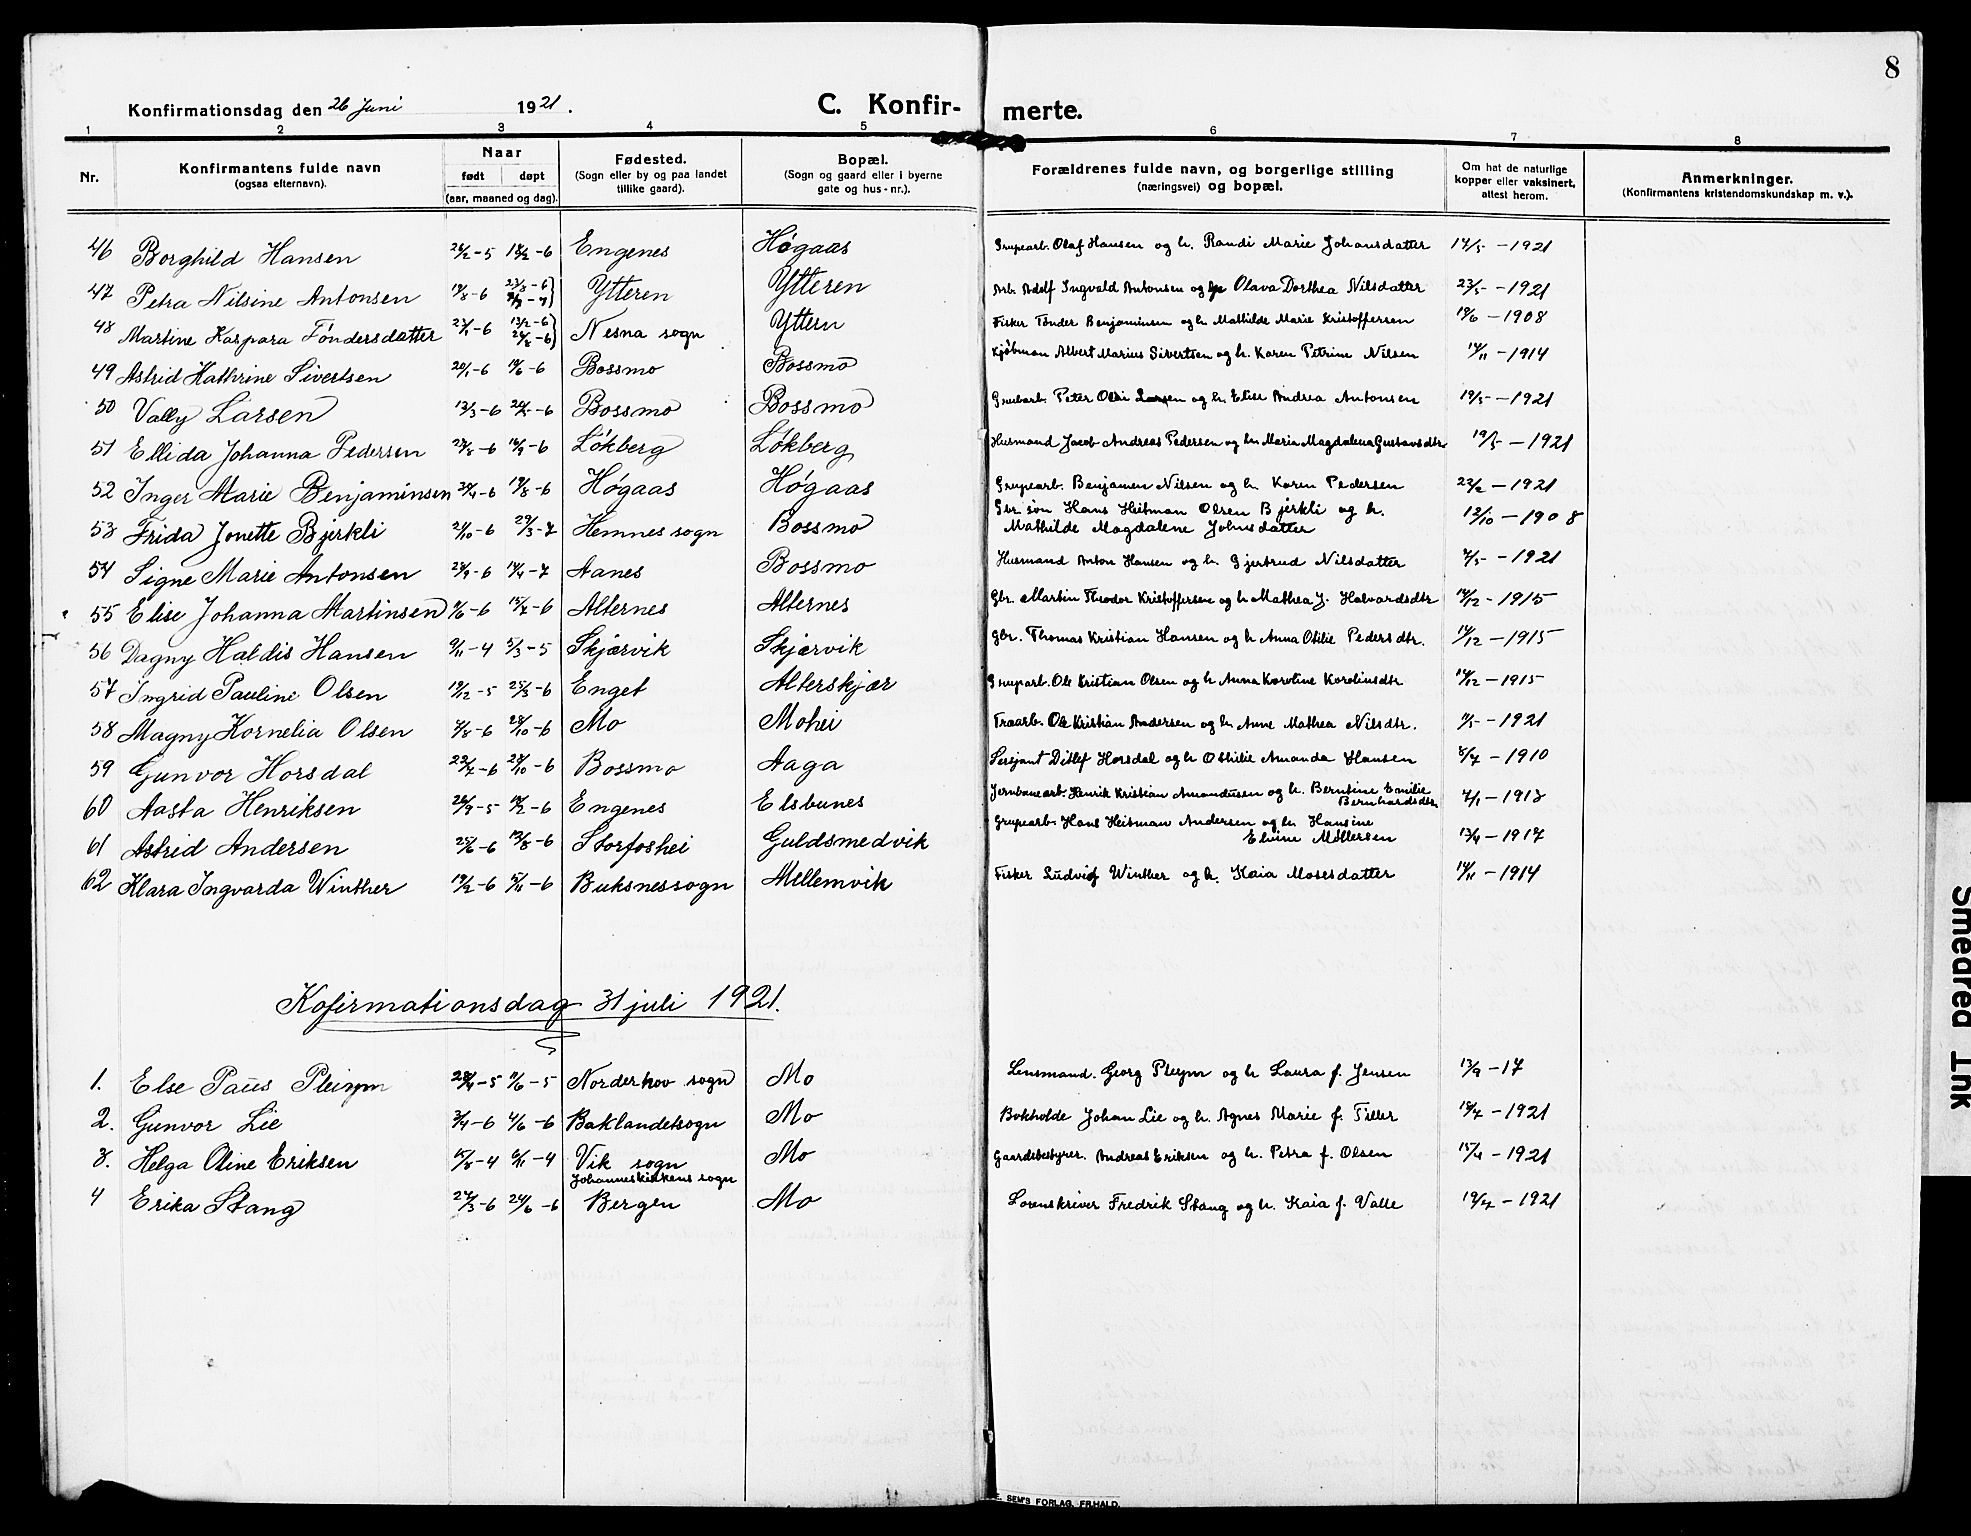 8
Konfirmationsdag den 26 Juni 1921. C. Konfir- merte.
1 2 3 4 5 6 7 8
Nr. Konfirmantens fulde navn (ogsaa efternavn). Naar født døpt (aar, maaned og dag). Fødested. (Sogn eller by og paa landet tillike gaard). Bopæl. (Sogn og gaard eller i byerne gate og hus-nr.). Forældrenes fulde navn, og borgerlige stilling (næringsvei) og bopæl. Om hat de naturlige kopper eller vaksinert, attest herom. Anmerkninger. (Konfirmantens kristendomskundskap m. v.).
46 Borghild Hansen 18/2-6 Engenes Høgaas Grupearb. Olaf Hansen og h. Randi Marie Johansdatter 14/5-1921
47 Petra Nilsine Antonsen 19/8-6 Ytteren Ytteren Arb. Adolf Ingvald Antonsen og Olava Dorthea Nilsdatter 23/5-1921
48 Martine Kaspara Tøndersdatter 13/2-6 Nesna sogn Yttern Fisker Tønder Benjaminsen og h. Mathilde Marie Kristoffersen 19/6-1908
49 Astrid Kathrine Sivertsen 20/1-6 Bossmo Bossmo Kjøbman Albert Marius Sivertsen og h. Karen Petrine Nilsen 14/11-1914
50 Vally Larsen 12/3-6 Bossmo Bossmo Grubarb. Peter Larsen og h. Elise Andrea Antonsen 19/5-1921
51 Ellida Johanna Pedersen 16/9-6 Løkberg Løkberg Husmand Jacob Andreas Pedersen og h. Maria Magdalena Gustavsdtr 19/5-1921
52 Inger Marie Benjaminsen 19/8-6 Høgaas Høgaas Grupearb. Benjamen Nilsen og h. Karen Pedersen 23/2-1921
53 Frida Jonette Bjerkli 29/3-7 Hemnes sogn Bossmo Gbr søn Hans Heitman Olsen Bjerkli og h. Mathilde Magdalene Johnsdatter 12/10-1908
54 Signe Marie Antonsen 14/4-7 Aanes Bossmo Husmand Anton Hansen og h. Gjertrud Nilsdatter 7/5-1921
55 Elise Johanna Martinsen 15/7-6 Alternes Alternes Gbr. Martin Theodor Kristoffersen og h Mathea J. Halvardsdtr 14/12-1915
56 Dagny Haldis Hansen 9/11-4 5/3-5 Skjærvik Skjærvik Gbr. Thomas Kristian Hansen og h Anna Otilie Pedersdtr. 14/12-1915
57 Ingrid Pauline Olsen 19/12-5 25/3-6 Enget Alterskjær Gruparb. Ole Kristian Olsen og h Anna Karoline Karoliusdtr 14/12-1915
58 Magny Kornelia Olsen 7/8-6 28/10-6 Mo Mohei Traarb. Ole Kristian Andersen og h. Anne Mathea Nilsdtr. 11/5-1921
59 Gunvor Horsdal 23/7-6 28/10-6 Bossmo Aaga Sersjant Ditlef Horsdal og h Othilie Amanda Hansen 8/7-1910
60 Aasta Henriksen 26/9-5 Engenes Elsbunes Jernbanearb. Henrik Kristian Amandussen og h. Berntine Emilie Bernhardsdtr 7/1-1918
61 Astrid Andersen 25/6-6 Storfoshei Guldsmedvik Grupearb. Hans Heitman Andersen og h. Hansine Elvine Møllersen 13/4-1917
62 Klara Ingvarda Winther 19/2-6 5/11-6 Buksnessogn Mellemvik Fisker Ludvig Winther og h. Kaia Mosesdatter 14/11-1914
Kofirmationsdag 31 juli 1921.
1. Else Paus Pleym 28/4-5 11/6-5 Norderhov sogn Mo Lensmand. Georg Pleym og h Laura f. Jensen 13/9-17
2. Gunvor Lie 3/4-6 4/6-6 Baklandetsogn Mo Bokholde Johan Lie og h. Agnes Marie f. Tiller 18/7-1921
3. Helga Oline Eriksen 15/8-4 6/11-4 Vik sogn Mo Gaardsbestyrer. Andreas Eriksen og h. Petra f. Olsen 15/4-1921
4 Erika Stang 27/3-6 24/6-6 Johanneskirkens sogn Bergen Mo Lorenskriver Fredrik Stang og h. Kaia f. Valle 19/7-1921
E. SEM'S FORLAG, FR.HALD.
Smeared Ink